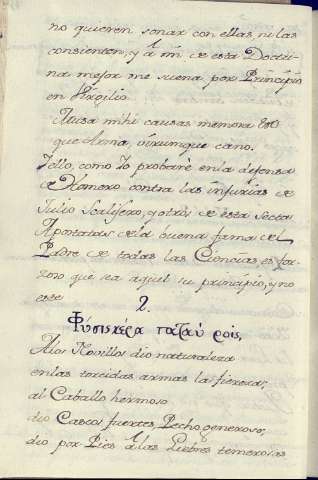 no quieren sonar con ellas, ni las
consienten, y à mi de esta Doctri-
na mejor me suena por Principio
en Virgilio
Musa mihi causas memora
que Arma, virumque cano.
Y ello, como Yo probarè en la defensa
de Homero contra las injurias de
Julio Scaligero, y otros de esta secta
Apostatas de la buena fama del
Padre de todas las Ciencias es for-
zoso que sea aquel su principio, y no
esse
2.
Φύσις κέρα ταῦροις,
A los Novillos dio naturaleza
en las torcidas armas la fiereza;
al Caballo hermoso
dio Cascos fuertes, Pecho generoso,
dio por Pies à las Liebres temerosas